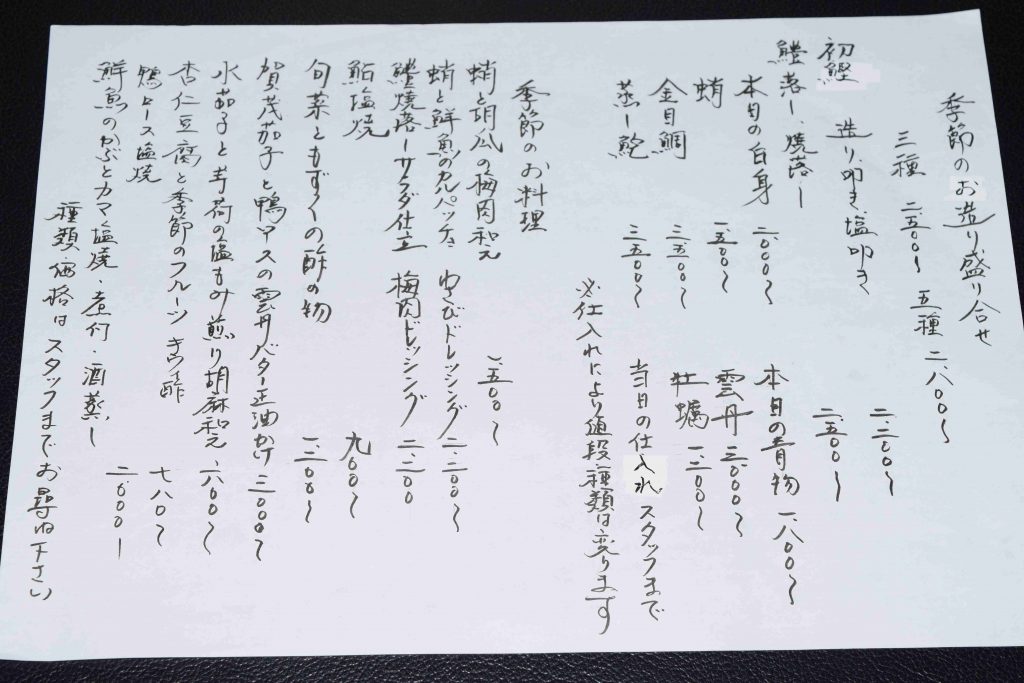 季節のお造り盛り合せ
三種 二、五〇〇〜 五種 二、八〇〇〜
初鰹 造り、叩き、塩叩き 二、二〇〇〜
鱧落し、焼落し 二、五〇〇〜
本日の白身 二、〇〇〇〜 本日の青物 一、八〇〇〜
蛸 一、五〇〇〜 雲丹 三、〇〇〇〜
金目鯛 二、五〇〇〜 牡蠣 一、二〇〇〜
蒸し鮑 三、五〇〇〜 当日の仕入れ スタッフまで
※仕入れにより値段、種類は変ります
季節のお料理
蛸と胡瓜の梅肉和え 一、五〇〇〜
蛸と鮮魚のカルパッチョ わさびドレッシング 二、二〇〇〜
鱧焼落しサラダ仕立 梅肉ドレッシング 二、二〇〇
鮎塩焼 九〇〇〜
旬菜ともずくの酢の物 一、二〇〇〜
賀茂茄子と鴨ロースの雲丹バター正油かけ 三、〇〇〇〜
水茄子と茗荷の塩もみ煎り胡麻和え 一、六〇〇〜
杏仁豆腐と季節のフルーツ
鴨ロース塩焼 一、八〇〇〜
鮮魚のかぶとカマ塩焼・煮付・酒蒸し 二、〇〇〇〜
種類・価格はスタッフまでお尋ね下さい